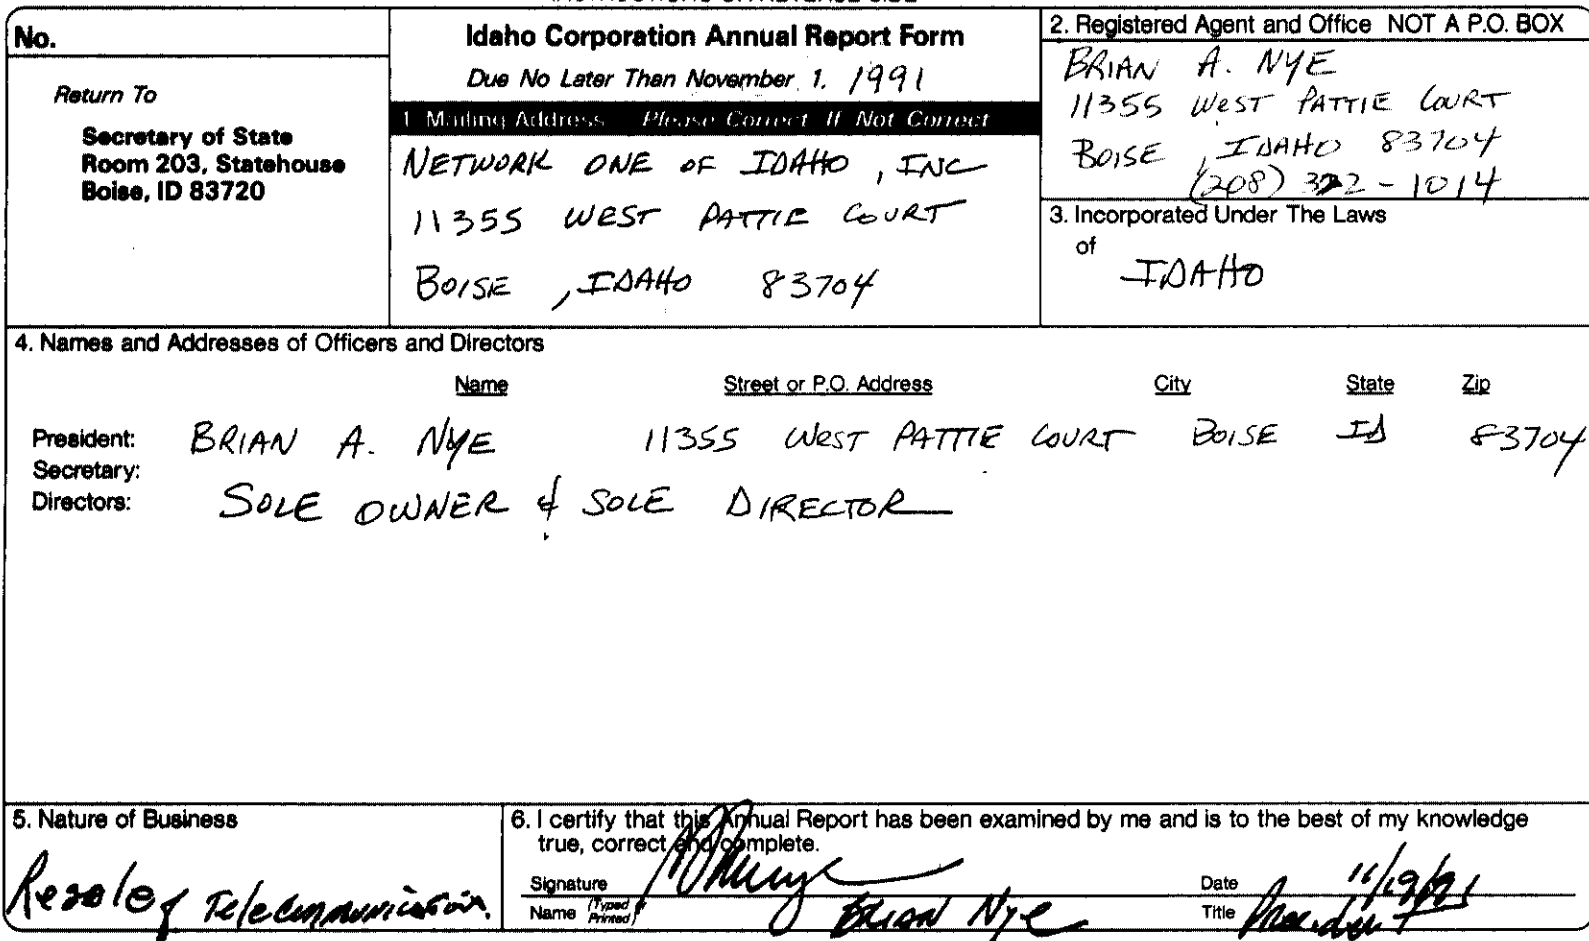 No.
Return To
Secretary of State
Room 203, Statehouse
Boise, ID 83720
Idaho Corporation Annual Report Form
Due No Later Than November 1. 1991
1 Mailing Address Please Correct If Not Correct
NETWORK ONE OF IDAHO, INC
11355 WEST PATTIE COURT
BOISE, IDAHO 83704
2. Registered Agent and Office NOT A P.O. BOX
BRIAN A. NYE
11355 WEST PATTIE COURT
BOISE, IDAHO 83704
(208) 322-1014
3. Incorporated Under The Laws
of
IDAHO
4. Names and Addresses of Officers and Directors
Name Street or P.O. Address City State Zip
President: BRIAN A. NYE 11355 WEST PATTIE COURT BOISE ID 83704
Secretary:
Directors: SOLE OWNER & SOLE DIRECTOR
5. Nature of Business
Resale of Telecommunication.
6. I certify that this Annual Report has been examined by me and is to the best of my knowledge
true, correct and complete.
Signature Date 11/19/91
Name (Typed Printed) Brian Nye Title President